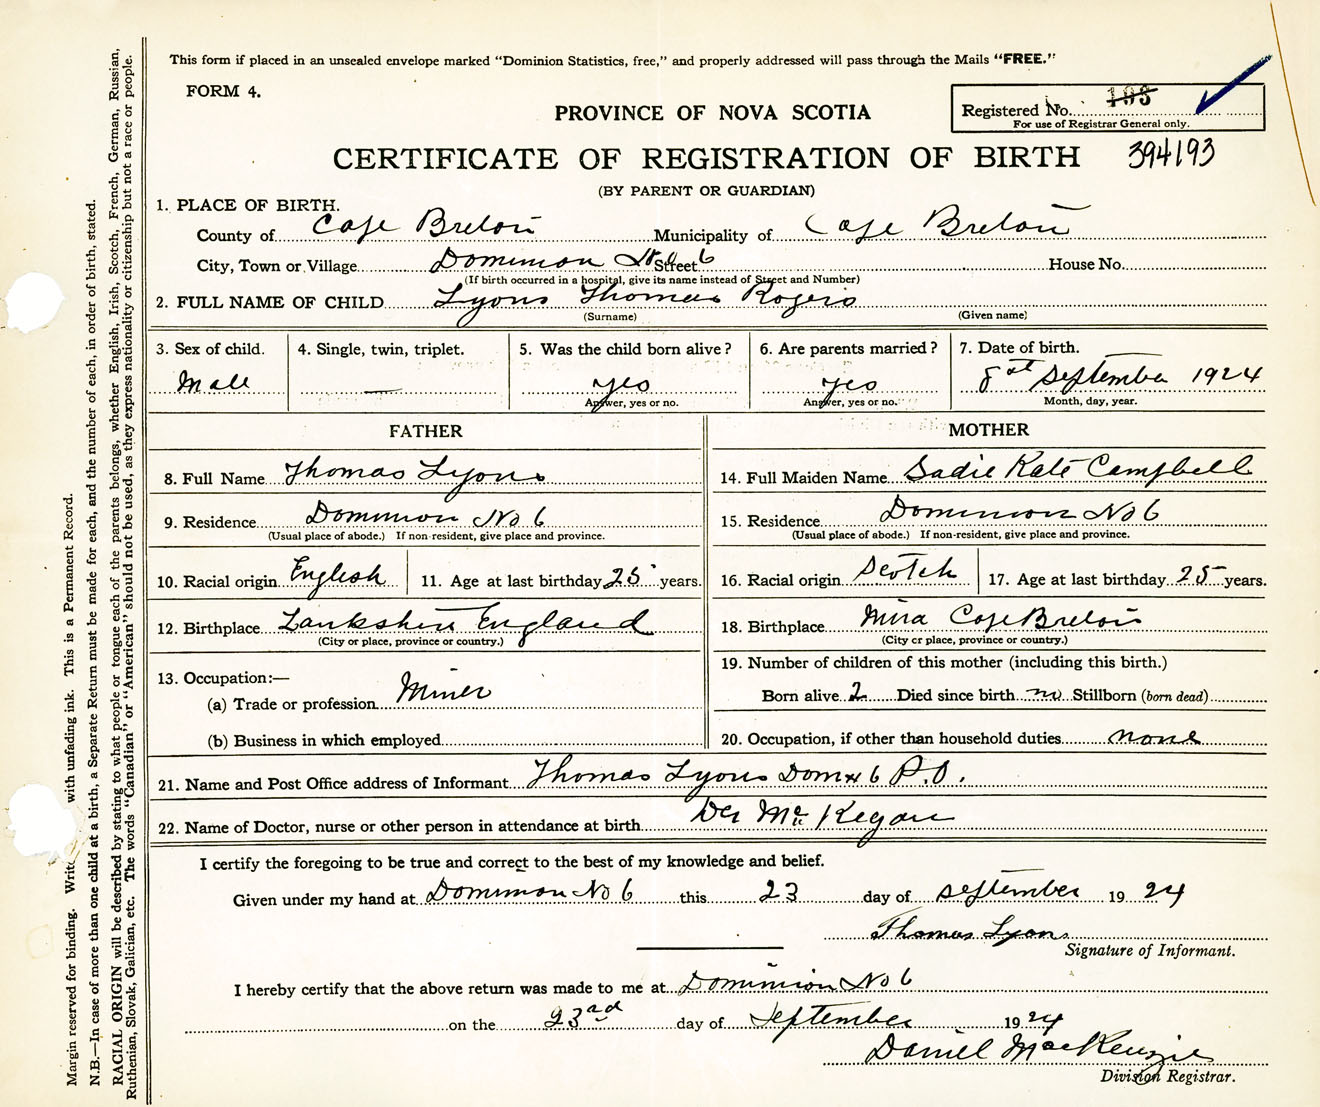 This form if placed in an unsealed envelope marked "Dominion Statistics, free," and properly addressed will pass through the Mails "FREE."
FORM 4.
PROVINCE OF NOVA SCOTIA
Registered No. 108
For use of Registrar General only.
CERTIFICATE OF REGISTRATION OF BIRTH 394193
(BY PARENT OR GUARDIAN)
1. PLACE OF BIRTH.
County of Cape Breton Municipality of Cape Breton
City, Town or Village Dominion No 6 Street House No.
(If birth occurred in a hospital, give its name instead of Street and Number)
2. FULL NAME OF CHILD Lyons Thomas Rogers
(Surname) (Given name)
3. Sex of child. 4. Single, twin, triplet. 5. Was the child born alive? 6. Are parents married? 7. Date of birth.
Male — yes yes 8st September 1924
Answer, yes or no. Answer, yes or no. Month, day, year.
FATHER MOTHER
8. Full Name Thomas Lyons 14. Full Maiden Name Sadie Kate Campbell
9. Residence Dominion No 6 15. Residence Dominion No 6
(Usual place of abode.) If non-resident, give place and province. (Usual place of abode.) If non-resident, give place and province.
10. Racial origin English 11. Age at last birthday 25 years. 16. Racial origin Scotch 17. Age at last birthday 25 years.
12. Birthplace Lankshire England 18. Birthplace Mira Cape Breton
(City or place, province or country.) (City or place, province or country.)
13. Occupation:— 19. Number of children of this mother (including this birth.)
(a) Trade or profession Miner Born alive 2 Died since birth no Stillborn (born dead)
(b) Business in which employed 20. Occupation, if other than household duties none
21. Name and Post Office address of Informant Thomas Lyons Dom No 6 P.O.
22. Name of Doctor, nurse or other person in attendance at birth Dr McKegan
I certify the foregoing to be true and correct to the best of my knowledge and belief.
Given under my hand at Dominion No 6 this 23 day of September 1924
Thomas Lyons
Signature of Informant.
I hereby certify that the above return was made to me at Dominion No 6
on the 23rd day of September 1924
Daniel MacKenzie
Division Registrar.
Margin reserved for binding. Write with unfading ink. This is a Permanent Record.
N.B.—In case of more than one child at a birth, a Separate Return must be made for each, and the number of each, in order of birth, stated.
RACIAL ORIGIN will be described by stating to what people or tongue each of the parents belongs, whether English, Irish, Scotch, French, German, Russian,
Ruthenian, Slovak, Galician, etc. The words "Canadian" or "American" should not be used, as they express nationality or citizenship but not a race or people.